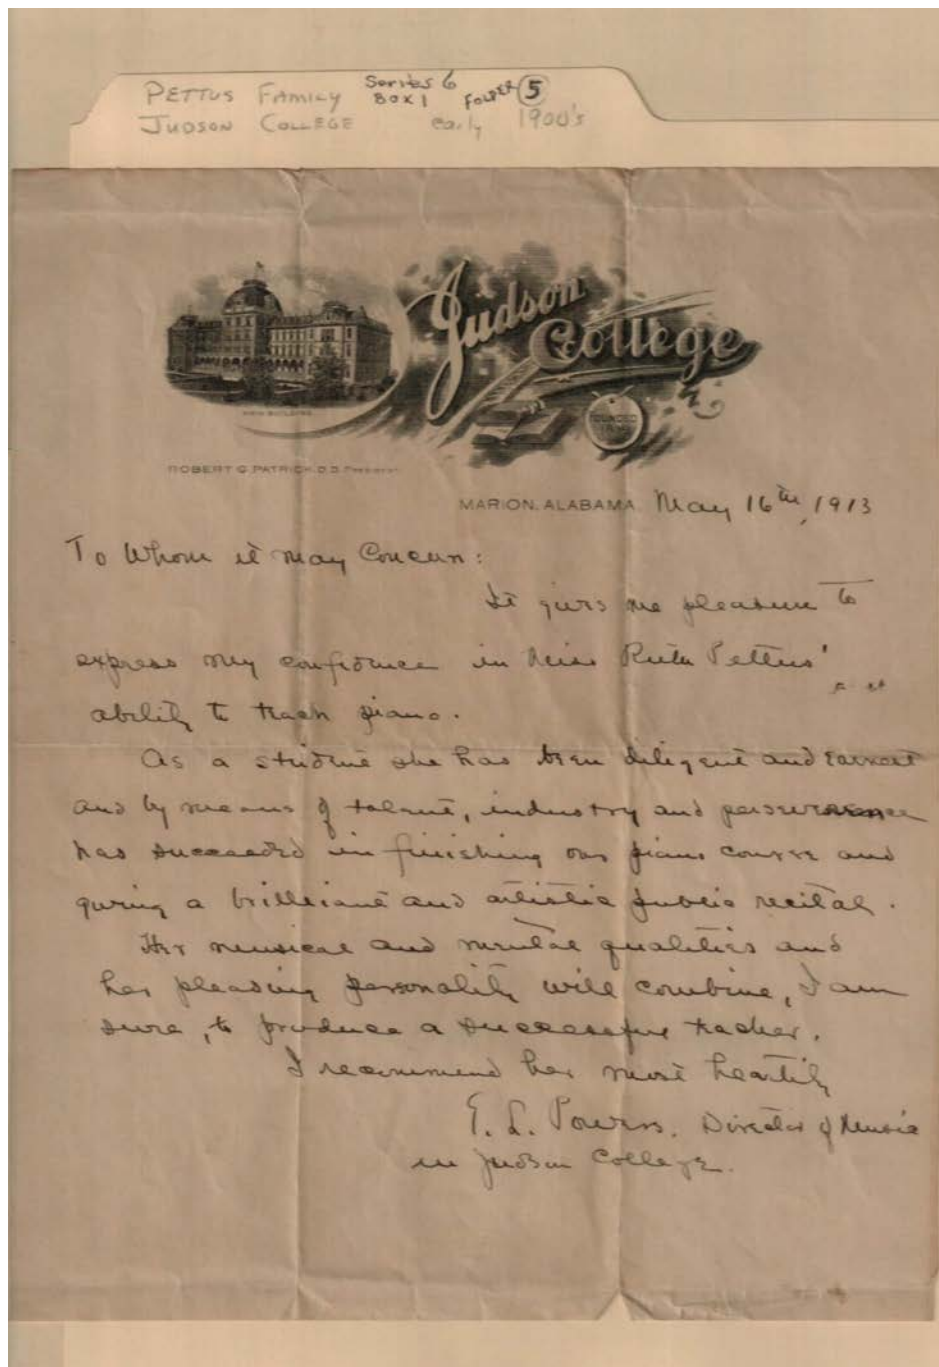 PETTUS FAMILY Series 6 BOX 1 FOLDER 5
JUDSON COLLEGE early 1900's
Judson College
MAIN BUILDING
FOUNDED
ROBERT G. PATRICK, D.D. President
MARION, ALABAMA May 16th, 1913
To Whom it may Concern:
It gives me pleasure to
express my confidence in Miss Ruth Pettus'
ability to teach piano.
As a student she has been diligent and earnest
and by means of talent, industry and perseverence
has succeeded in finishing our piano course and
giving a brilliant and artistic public recital.
Her musical and mental qualities and
her pleasing personality will combine, I am
sure, to produce a successful teacher.
I recommend her most heartily
E. L. Powers. Director of Music
in Judson College.